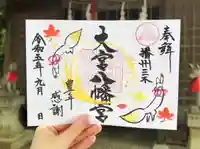 奉拝
播州三木
大宮八幡宮
豊年
感謝
令和五年九月 日